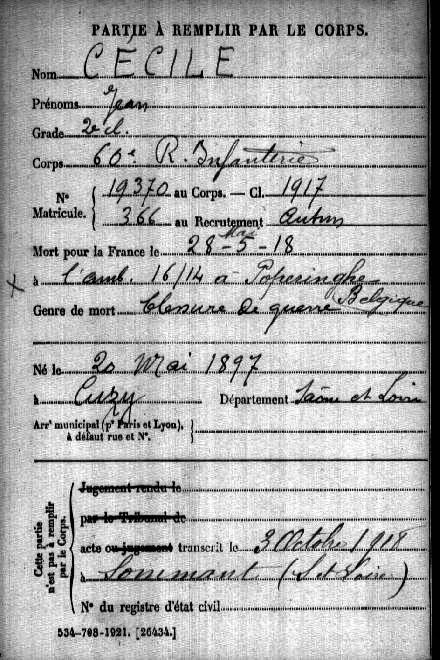 PARTIE À REMPLIR PAR LE CORPS.
Nom CÉCILE
Prénoms Jean
Grade 2e cl.
Corps 60e R. Infanterie
N° Matricule. { 19370 au Corps. — Cl. 1917
366 au Recrutement Autun
Mort pour la France le 28 - 5 - 18
Mai
à l'amb. 16/14 à Poperinghe
Belgique
Genre de mort blessure de guerre
Né le 20 Mai 1897
à Cuzy Département Saône et Loire
Arrt municipal (pr Paris et Lyon), à défaut rue et N°.
Cette partie n'est pas à remplir par le Corps.
Jugement rendu le
par le Tribunal de
acte ou jugement transcrit le 3 Octobre 1918
à (S et Loire)
N° du registre d'état civil
534-708-1921. [26434.]